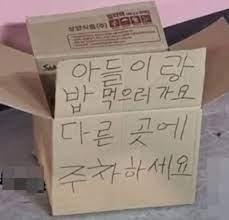 삼양식품(주)
아들이랑
밥 먹으러가요
다른 곳에
주차하세요